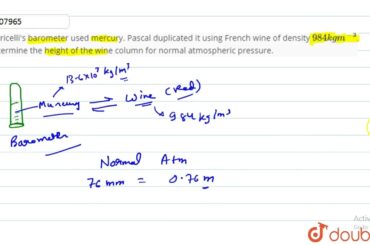 07965
ricelli's barometer used mercury. Pascal duplicated it using French wine of density 984kgm⁻³.
termine the height of the wine column for normal atmospheric pressure.
13.6×10³ kg/m³
Mercury → Wine (Red)
984 kg/m³
Barometer
Normal Atm
76 mm = 0.76 m
doubt